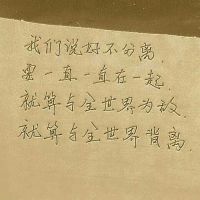 我们说好不分离.
要一直一直在一起.
就算与全世界为敌.
就算与全世界背离.